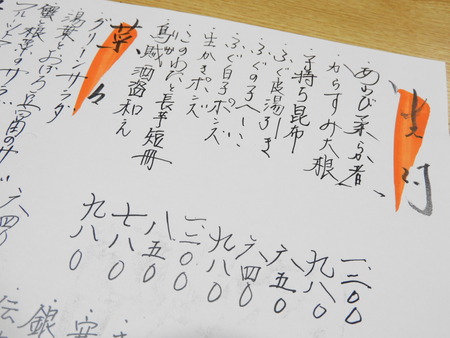 あわび柔か煮
からすみ大根
子持ち昆布
ふぐ皮湯引き
ふぐの子
ふぐ白子ポンズ
生かきポンズ
このわたと長芋短冊
烏賊酒盗和え
一二〇〇
九八〇
六五〇
六四〇
九八〇
一二〇〇
八五〇
七八〇
九八〇
菜々
グリーンサラダ
湯葉とおぼろ豆腐のサラダ
蟹と根菜のサラダ
六四〇
九八〇
銀